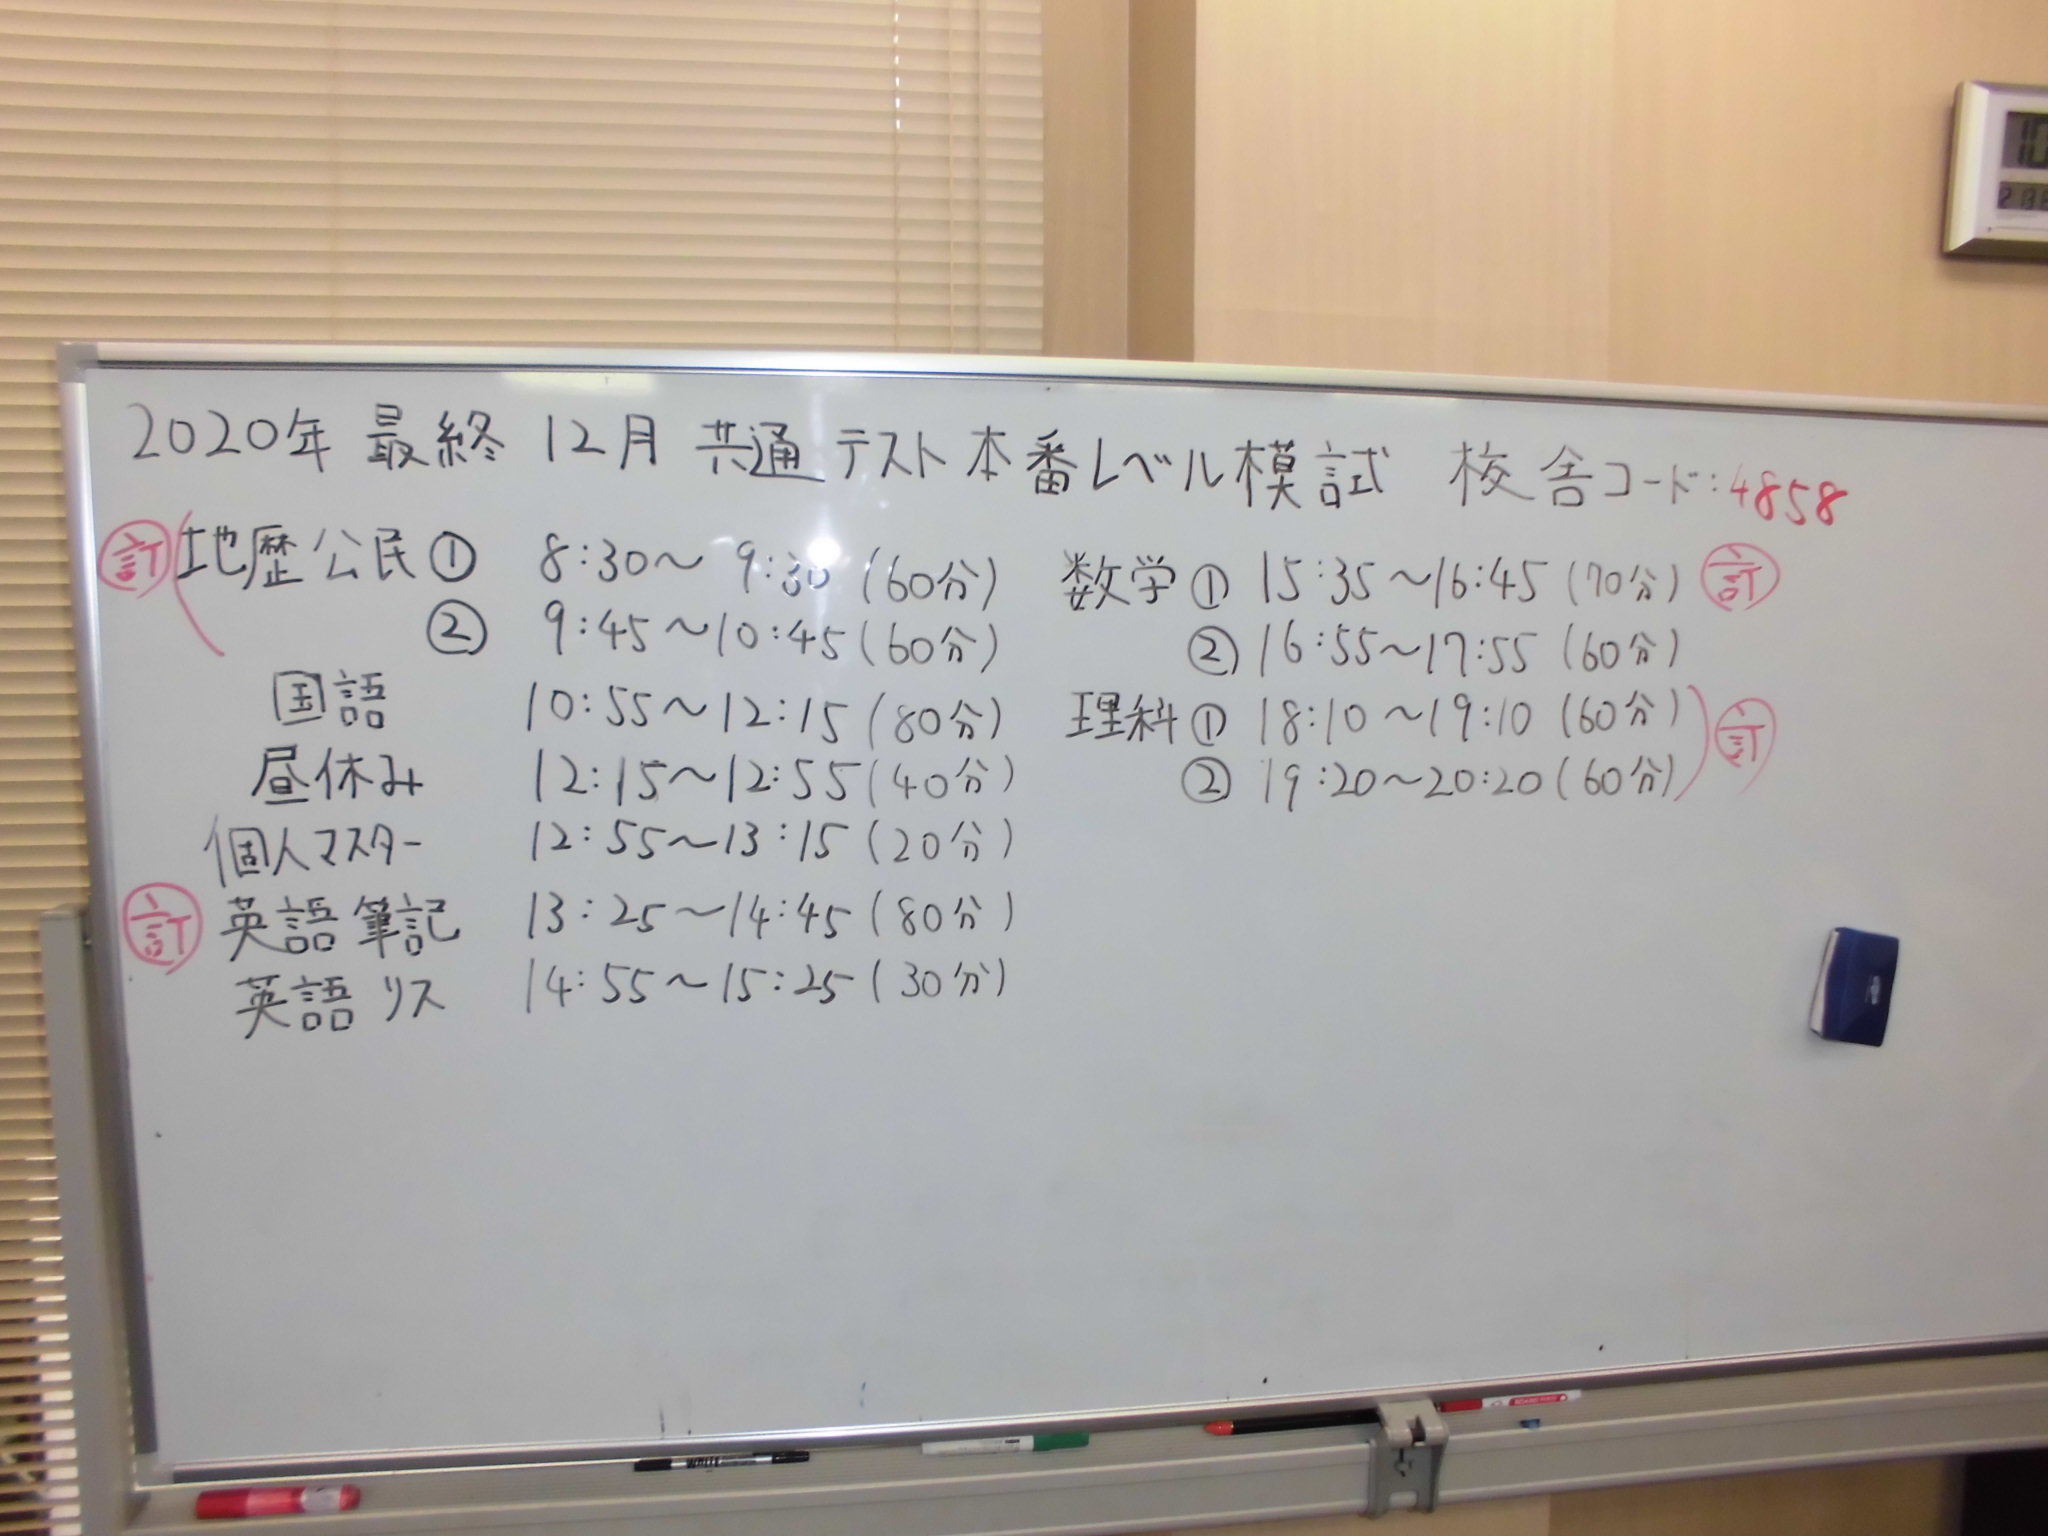 2020年 最終 12月 共通テスト本番レベル模試 校舎コード:4858
訂 地歴公民① 8:30～9:30(60分)
② 9:45～10:45(60分)
国語 10:55～12:15(80分)
昼休み 12:15～12:55(40分)
個人マスター 12:55～13:15(20分)
訂 英語筆記 13:25～14:45(80分)
英語リス 14:55～15:25(30分)
数学① 15:35～16:45(70分) 訂
② 16:55～17:55(60分)
理科① 18:10～19:10(60分) 訂
② 19:20～20:20(60分)